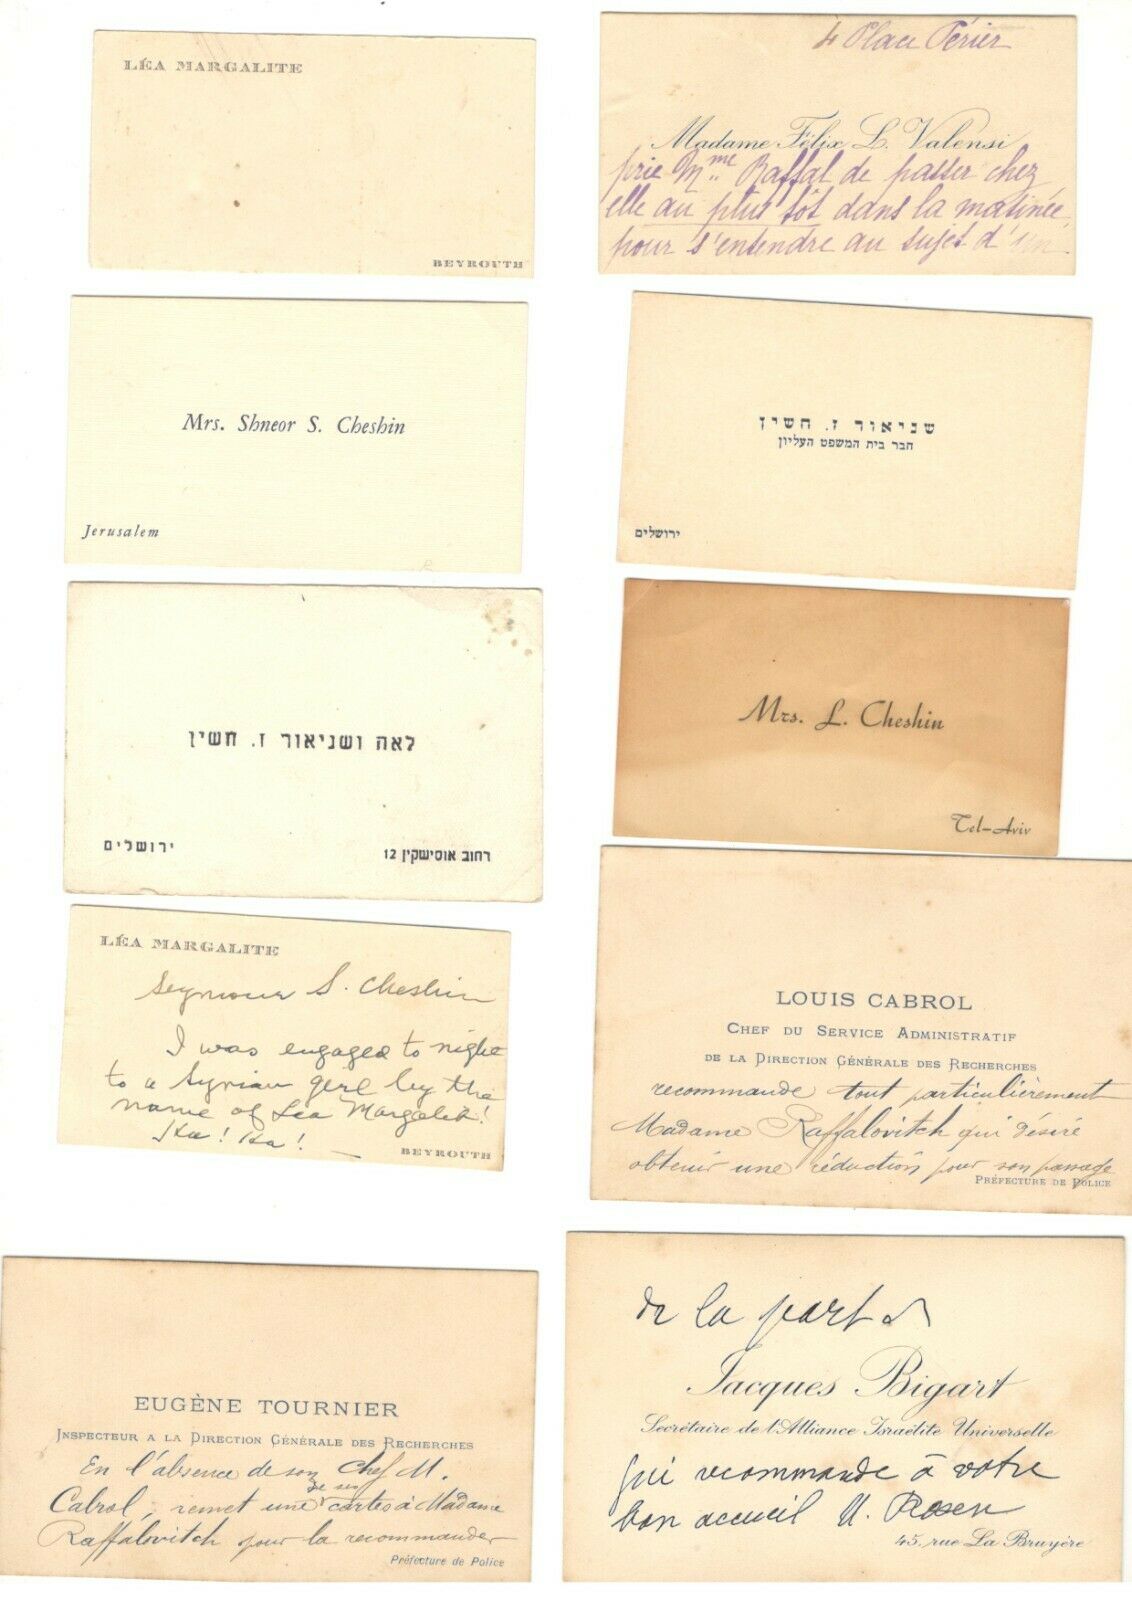 LÉA MARGALITE
BEYROUTH
4 Place Périer
Madame Félix L. Valensi
prie Mme Raffal de passer chez
elle au plus tôt dans la matinée
pour s'entendre au sujet d'un
Mrs. Shneor S. Cheshin
Jerusalem
שניאור ז. חשין
חבר בית המשפט העליון
ירושלים
לאה ושניאור ז. חשין
ירושלים
רחוב אוסישקין 12
Mrs. L. Cheshin
Tel-Aviv
LÉA MARGALITE
Seymour S. Cheshin
I was engaged to nighe
to a Syrian gerl by the
name of Léa Margalit!
Ha! Ha!
BEYROUTH
LOUIS CABROL
CHEF DU SERVICE ADMINISTRATIF
DE LA DIRECTION GÉNÉRALE DES RECHERCHES
recommande tout particulièrement
Madame Raffalovitch qui désire
obtenir une réduction pour son passage
PRÉFECTURE DE POLICE
EUGÈNE TOURNIER
INSPECTEUR A LA DIRECTION GÉNÉRALE DES RECHERCHES
En l'absence de son Chef M.
Cabrol, remet une de ses cartes à Madame
Raffalovitch pour la recommander
Préfecture de Police
de la part de
Jacques Bigart
Secrétaire de l'Alliance Israélite Universelle
qui recommande à votre
bon accueil M. Rosen
45, rue La Bruyère